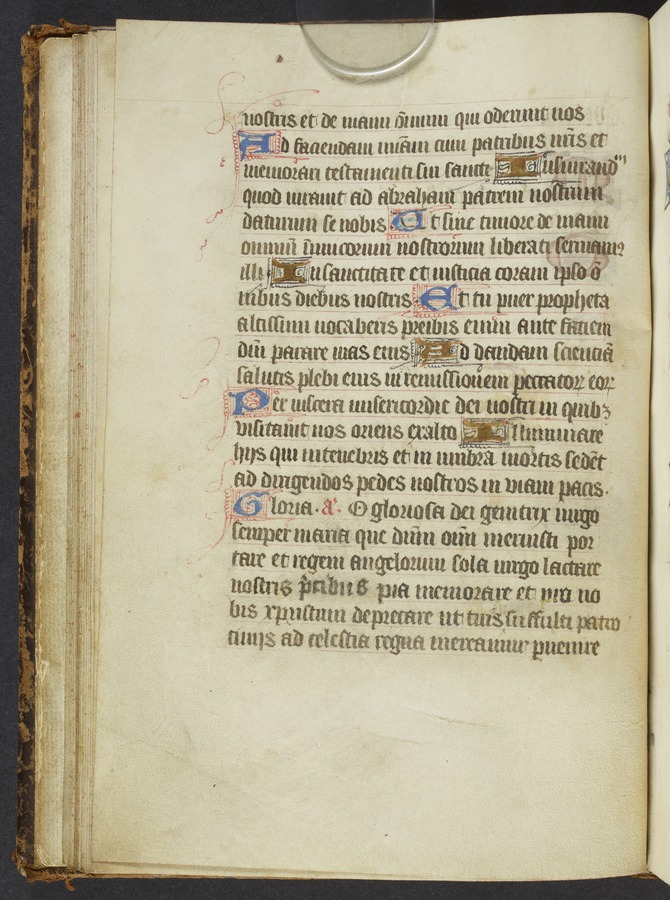 nostris et de manu om̄nium qui oderunt nos
Ad faciendam mīam cum patribus nr̄is et
memorari testamenti sui sancti Iusiurand'
quod iurauit ad abraham patrem nostrum
daturum se nobis Ut sine timore de manu
omniū inimicorum nostrorum liberati seruiamꝰ
illi In sanctitate et iusticia coram ipso ō
nibus diebus nostris Et tu puer propheta
altissimi uocaberis preibis enim ante faciem
dn̄i parare uias eius Ad dandam scienciā
salutis plebi eius in remissionem peccatoꝝ eoꝝ
Per uiscera misericordie dei nostri in quibꝫ
uisitauit nos oriens exalto Illuminare
hijs qui intenebris et in umbra mortis sedēt
ad dirigendos pedes nostros in uiam pacis.
Gloria. a͛. O gloriosa dei genitrix uirgo
semper maria que dn̄m om̄i meruisti por
tare et regem angelorum sola uirgo lactare
nostris p̄cibus pia memorare et pro no
bis xpristum deprecare ut tuis suffulti patro
cinijs ad celestia regna mereamur ꝑuenire